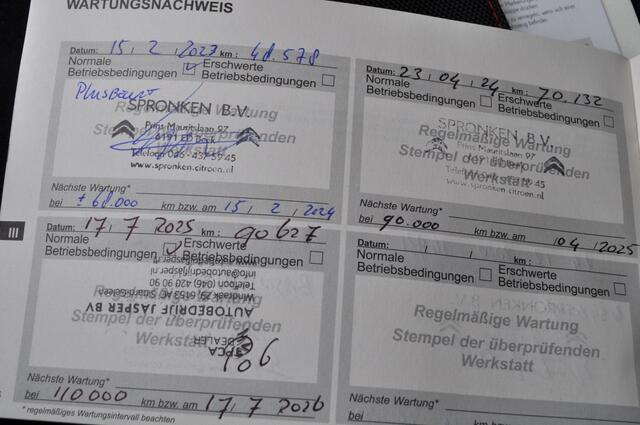 WARTUNGSNACHWEIS
Datum: 15 / 2 / 2023 km: 48.578
Normale Betriebsbedingungen
Erschwerte Betriebsbedingungen
Plusbeurt
Regelmäßige Wartung
Stempel der überprüfenden
Werkstatt
SPRONKEN B.V.
Prins Mauritslaan 97
6191 ED Beek
Telefoon 046-437 59 45
www.spronken.citroen.nl
Nächste Wartung*
bei ± 68.000 km bzw. am 15 / 2 / 2024
Datum: 23 / 04 / 24 km: 70.132
Normale Betriebsbedingungen
Erschwerte Betriebsbedingungen
SPRONKEN B.V.
Prins Mauritslaan 97
Regelmäßige Wartung
Stempel der überprüfenden
Werkstatt
45
www.spronken.citroen.nl
Nächste Wartung*
bei 90.000 km bzw. am / 04 / 2025
III
Datum: 17 / 7 / 2025 km: 90627
Normale Betriebsbedingungen
Erschwerte Betriebsbedingungen
Regelmäßige Wartung
Stempel der überprüfenden
Werkstatt
DEALER
AUTOBEDRIJF JASPER BV
Telefoon (046) 420 90 90
info@autobedrijfjasper.nl
Nächste Wartung*
bei 110000 km bzw. am 17 / 7 / 2026
* regelmäßiges Wartungsintervall beachten
Datum: / / km:
Normale Betriebsbedingungen
Erschwerte Betriebsbedingungen
Regelmäßige Wartung
Stempel der überprüfenden
Werkstatt
Nächste Wartung*
bei km bzw. am / /